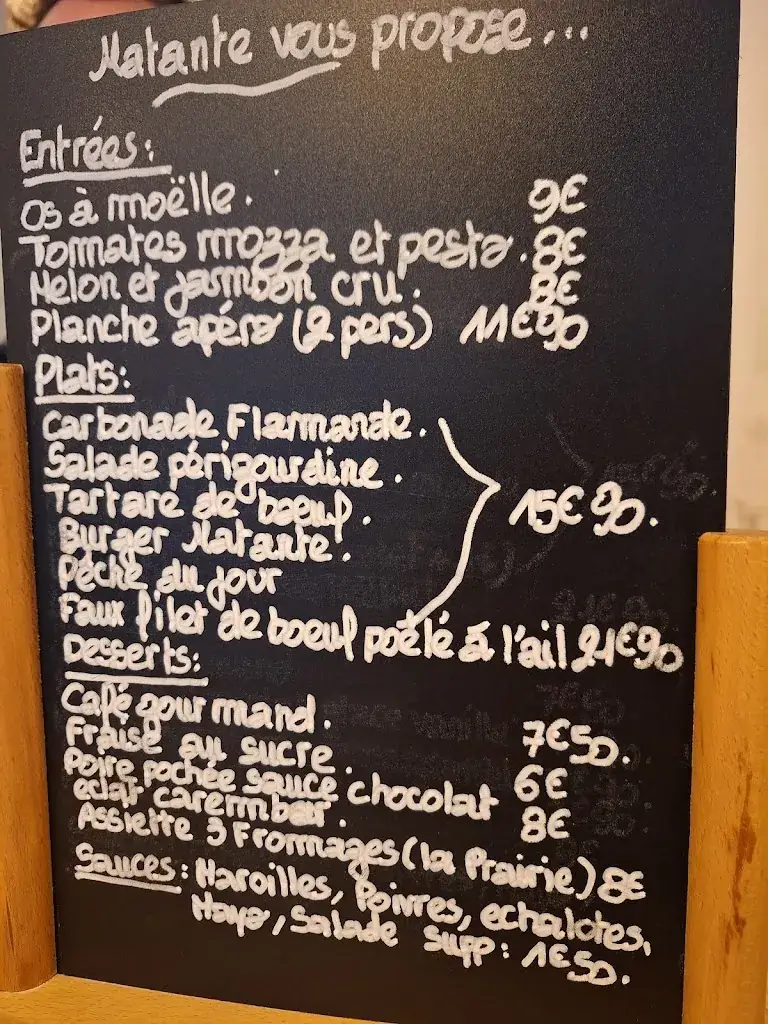 Matante vous propose...
Entrées:
Os à moëlle. 9€
Tomates mozza et pesto. 8€
Melon et jambon cru. 8€
Planche apéro (2 pers) 11€90
Plats:
Carbonade Flamande.
Salade périgourdine.
Tartare de boeuf. 15€90.
Burger Matante.
Pêche du jour
Faux filet de boeuf poêlé à l'ail 21€90
Desserts:
Café gourmand. 7€50.
Fraise au sucre. 6€
Poire pochée sauce chocolat
eclat carambar. 8€
Assiette 3 Fromages (la Prairie) 8€
Sauces: Maroilles, Poivres, echalotes,
Mayo, Salade supp: 1€50.